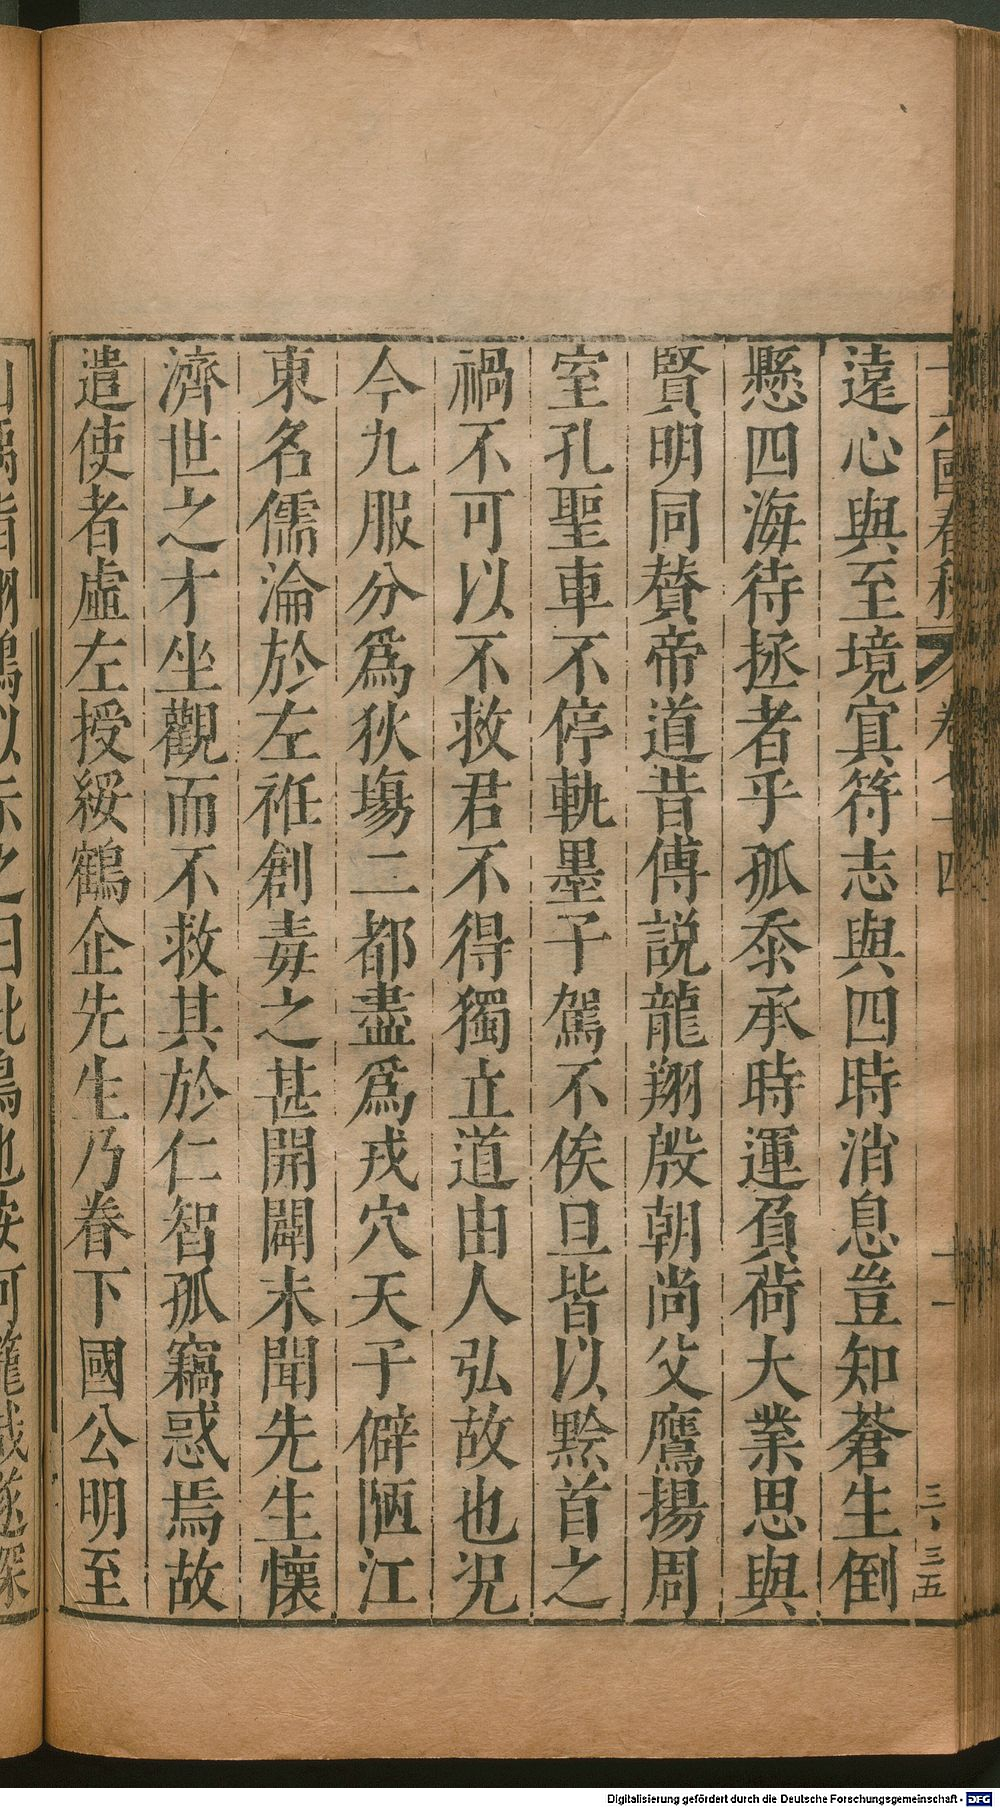 遠心與至境冥符志與四時消息豈知蒼生倒
懸四海待拯者乎孤忝承時運負荷大業思與
賢明同賛帝道昔傅説龍翔殷朝尚父鷹揚周
室孔聖車不停軌墨子駕不俟旦皆以黔首之
禍不可以不救君不得獨立道由人弘故也况
今九服分爲狄塲二都盡爲戎穴天子僻陋江
東名儒淪於左袵創毒之甚開闢未聞先生懷
濟世之才坐觀而不救其於仁智孤竊惑焉故
遣使者虛左授綏鶴企先生乃眷下國公明至
Digitalisierung gefördert durch die Deutsche Forschungsgemeinschaft - DFG